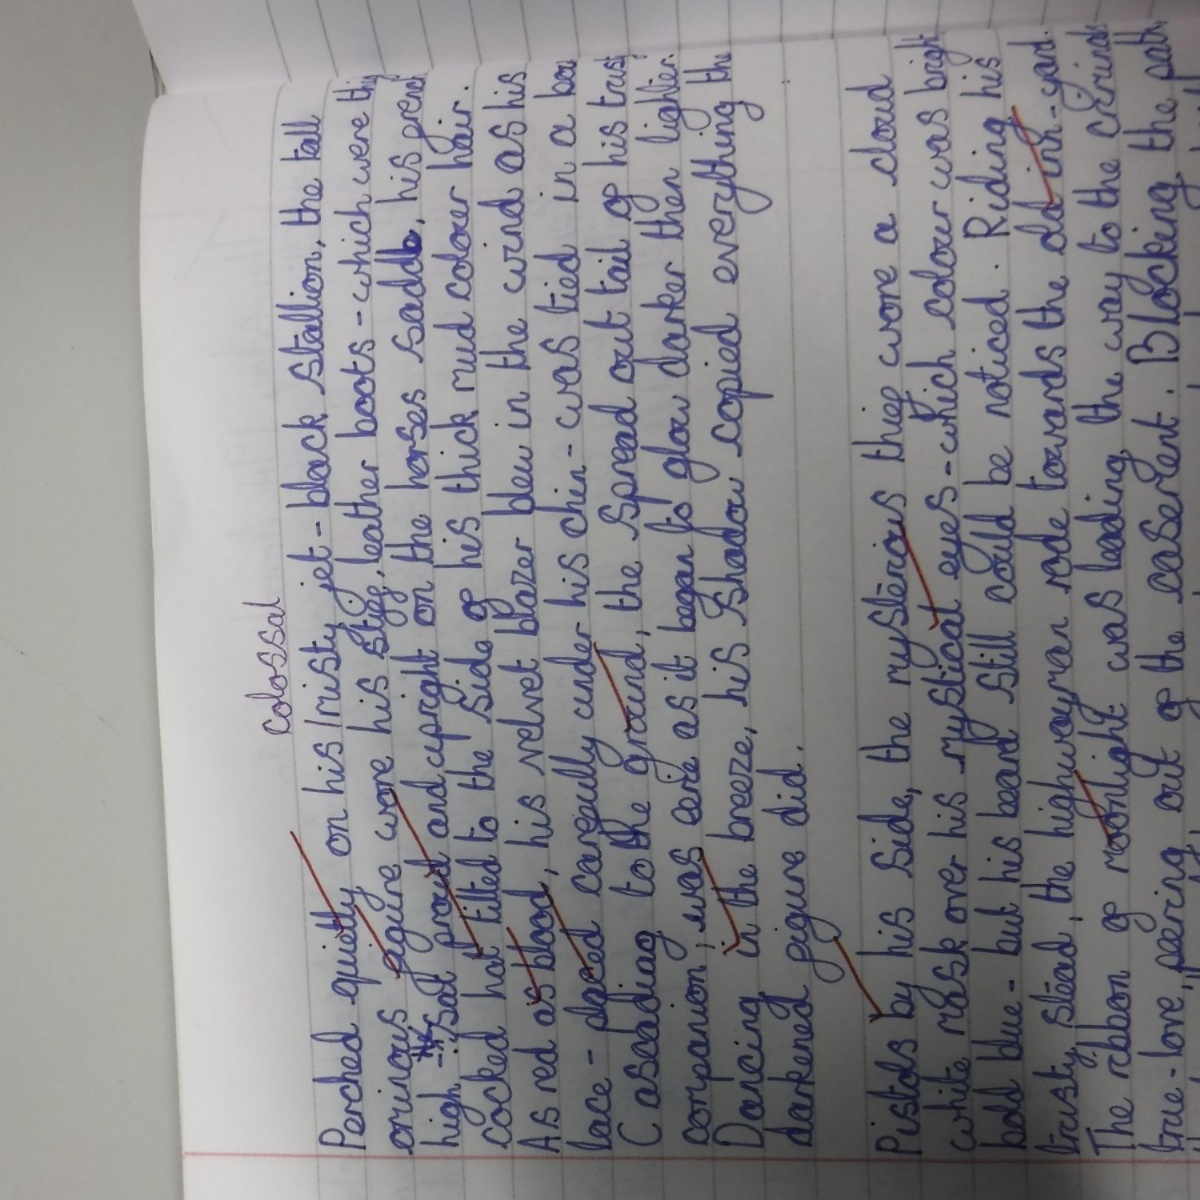 colossal
Perched quietly on his trusty jet-black stallion, the tall
ominous figure wore his stiff, leather boots - which were thigh
high - sat proud and upright on the horses saddle, his french
cocked hat tilted to the side of his thick mud colour hair.
As red as blood, his velvet blazer blew in the wind as his
lace - placed carefully under his chin - was tied in a bow
Cascading to the ground, the spread out tail of his trusty
companion, was eerie as it began to glow darker then lighter.
Dancing in the breeze, his shadow copied everything the
darkened figure did.
Pistols by his side, the mysterious thief wore a cloud
white mask over his mystical eyes - which colour was bright
bold blue - but his beard still could be noticed. Riding his
trusty stead, the highwayman rode towards the old inn-yard.
The ribbon of moonlight was leading the way to the criminals
true-love, peering out of the casement. Blocking the path,